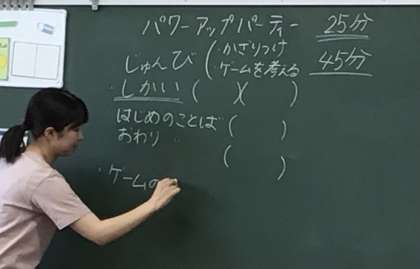 パワーアップパーティー 25分
じゅんび(・かざりつけ
・ゲームを考える 45分
・しかい( )( )
はじめのことば( )
おわり 〃 ( )
・ゲームの